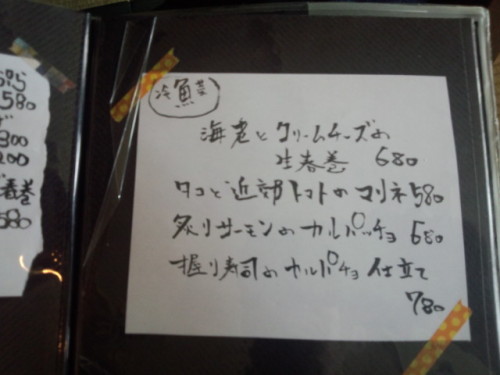 580
300
200
春巻
580
冷魚菜
海老とクリームチーズの
生春巻 680
タコと近郊トマトのマリネ 580
炙りサーモンのカルパッチョ 680
握り寿司のカルパチョ仕立て
780